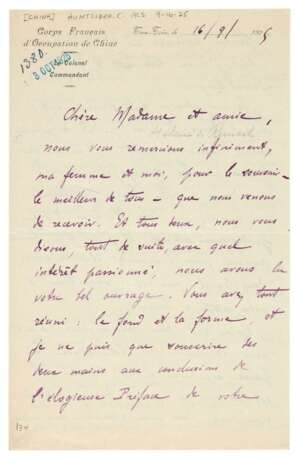 [CHINA]
9-16-25
Corps Français
d'Occupation de Chine
Le Colonel
Commandant
1380
3 OCT
16/9/ 1925
Chère Madame et amie,
nous vous remercions infiniment,
ma femme et moi, pour le souvenir –
le meilleur de tous – que nous venons
de recevoir. Et tous deux, nous vous
disons, tout de suite, avec quel
intérêt passionné, nous avons lu
votre bel ouvrage. Vous avez tout
réuni : le fond et la forme, et
je ne puis que souscrire des
deux mains aux conclusions de
l'élogieuse Préface de votre